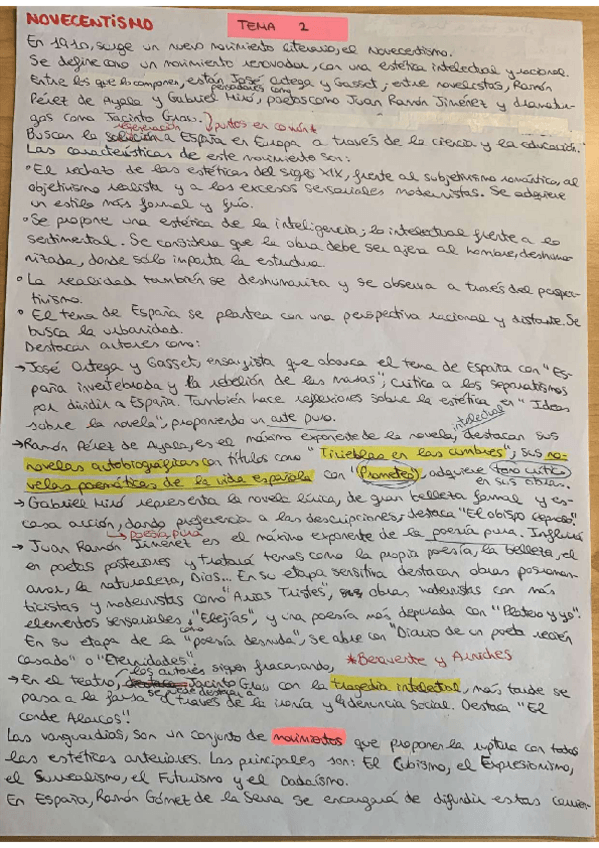 NOVECENTISMO
TEMA 2
En 1910, surge un nuevo movimiento literario, el Novecentismo.
Se define como un movimiento renovador, con una estética intelectual y racional.
Entre los que lo componen, están José Ortega y Gasset, entre novelistas, Ramón
pensadores como
Pérez de Ayala y Gabriel Miró, poetas como Juan Ramón Jiménez y dramatur-
gos como Jacinto Grau. puntos en común*
regeneración
Buscan la solución a España en Europa a través de la ciencia y la educación.
Las características de este movimiento son:
• El rechazo de las estéticas del siglo XIX, frente al subjetivismo romántico, al
objetivismo realista y a los excesos sensoriales modernistas. Se adquiere
un estilo más formal y frío.
• Se propone una estética de la inteligencia; lo intelectual frente a lo
sentimental. Se considera que la obra debe ser ajena al hombre, deshuma-
nizada, donde sólo importa la estructura.
• La realidad también se deshumaniza y se observa a través del perspec-
tivismo.
• El tema de España se plantea con una perspectiva racional y distante. Se
busca la urbanidad.
Destacan autores como:
→ José Ortega y Gasset, ensayista que abarca el tema de España con "Es-
paña invertebrada y la rebelión de las masas"; critica a los separatismos
por dividir a España. También hace reflexiones sobre la estética en "Ideas
sobre la novela", proponiendo un arte puro.
intelectual
→ Ramón Pérez de Ayala, es el máximo exponente de la novela, destacan sus
novelas autobiográficas con títulos como "Tinieblas en las cumbres", sus no-
velas poemáticas de la vida española con "Prometeo", adquiere tono crítico
en sus obras.
→ Gabriel Miró representa la novela lírica, de gran belleza formal y es-
casa acción, dando preferencia a las descripciones, destaca "El obispo leproso".
→ poesía pura
→ Juan Ramón Jiménez es el máximo exponente de la poesía pura. Influirá
en poetas posteriores y tratará temas como la propia poesía, la belleza, el
amor, la naturaleza, Dios... En su etapa sensitiva destacan obras posroman-
ticistas y modernistas como "Arias Tristes", sus obras modernistas con más
elementos sensoriales, "Elejías", y una poesía más depurada con "Platero y yo".
como
En su etapa de la "poesía desnuda", se abre con "Diario de un poeta recién
casado" o "Eternidades".
los autores siguen fracasando, *Benavente y Arniches
→ En el teatro, destaca Jacinto Grau con la tragedia intelectual, más tarde se
se puede destacar a
pasa a la farsa a través de la ironía y la denuncia social. Destaca "El
conde Alarcos"!
Las vanguardias, son un conjunto de movimientos que proponen la ruptura con todas
las estéticas anteriores. Las principales son: El Cubismo, el Expresionismo,
el Surrealismo, el Futurismo y el Dadaísmo.
En España, Ramón Gómez de la Serna se encargará de difundir estas corrien-